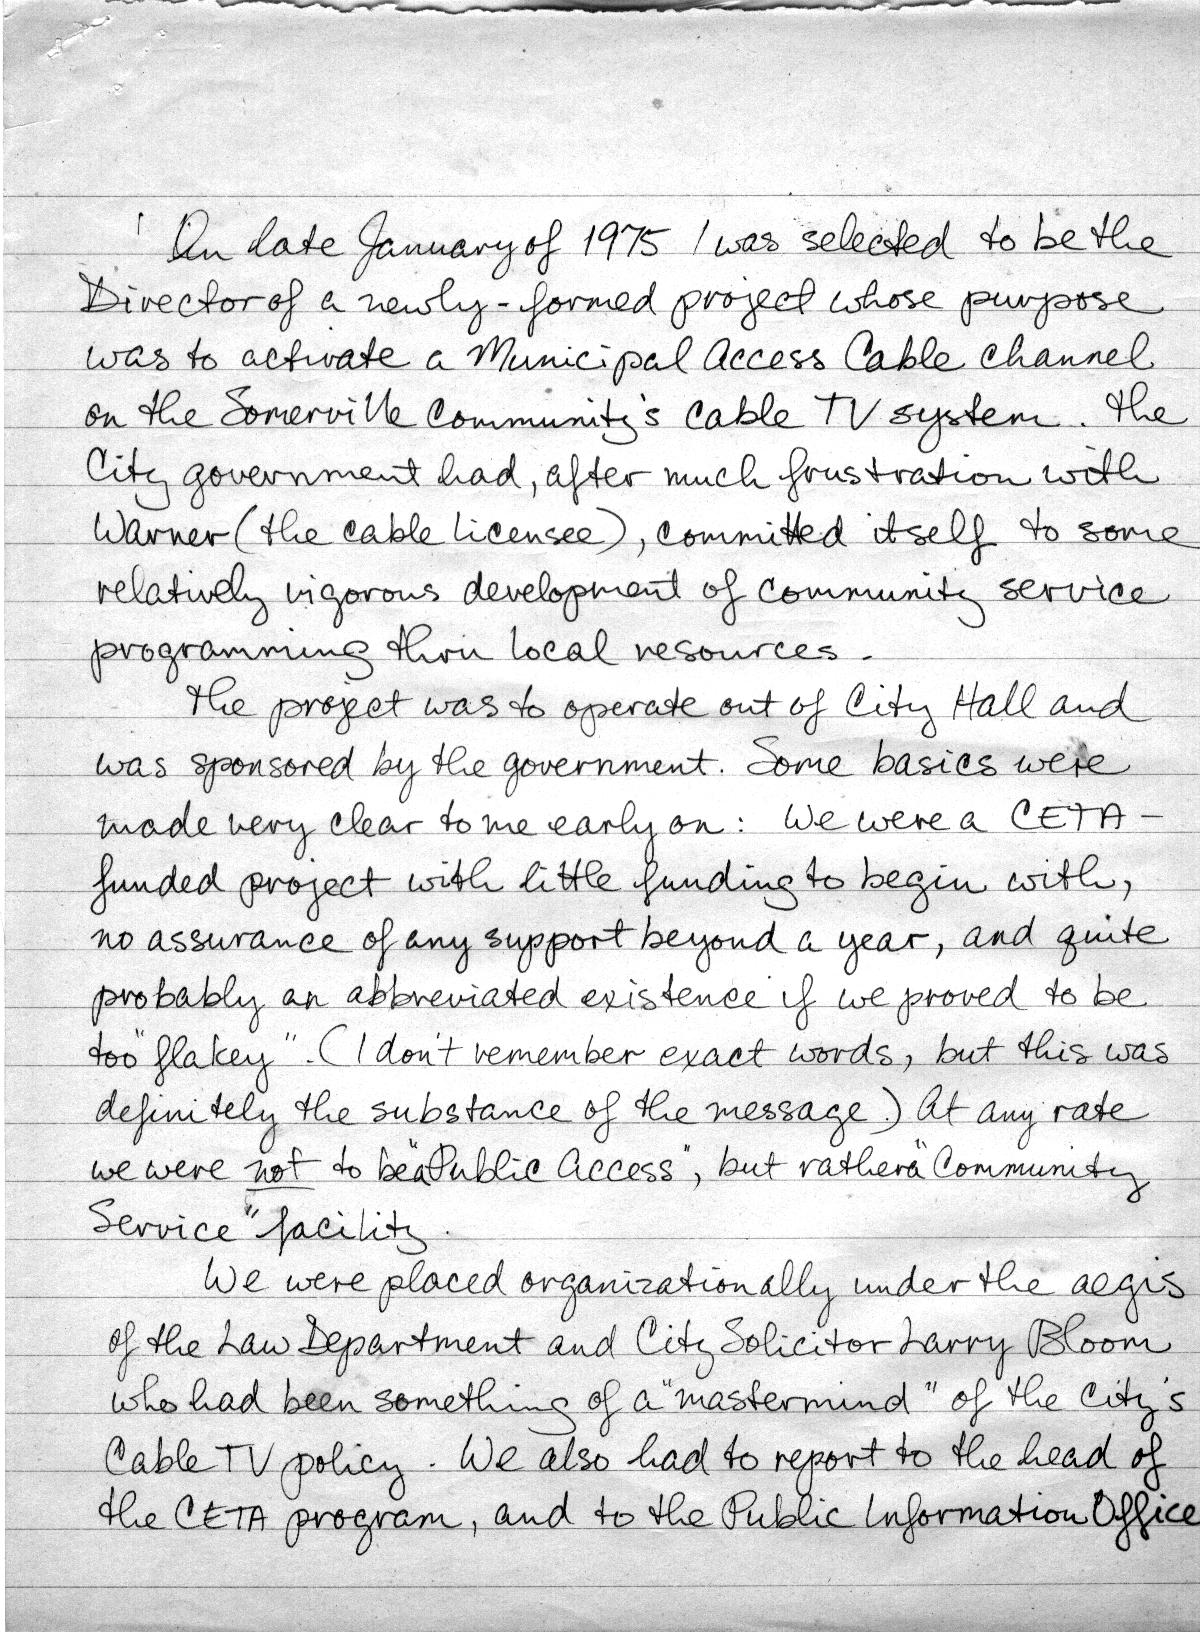 On late January of 1975 I was selected to be the
Director of a newly-formed project whose purpose
was to activate a Municipal Access Cable channel
on the Somerville Community's cable TV system. The
City government had, after much frustration with
Warner (the cable licensee), committed itself to some
relatively vigorous development of community service
programming thru local resources.
The project was to operate out of City Hall and
was sponsored by the government. Some basics were
made very clear to me early on: We were a CETA-
funded project with little funding to begin with,
no assurance of any support beyond a year, and quite
probably an abbreviated existence if we proved to be
too "flakey". (I don't remember exact words, but this was
definitely the substance of the message.) At any rate
we were not to be "a Public Access", but rather a "Community
Service" facility.
We were placed organizationally under the aegis
of the Law Department and City Solicitor Larry Bloom
who had been something of a "mastermind" of the City's
Cable TV policy. We also had to report to the head of
the CETA program, and to the Public Information Office